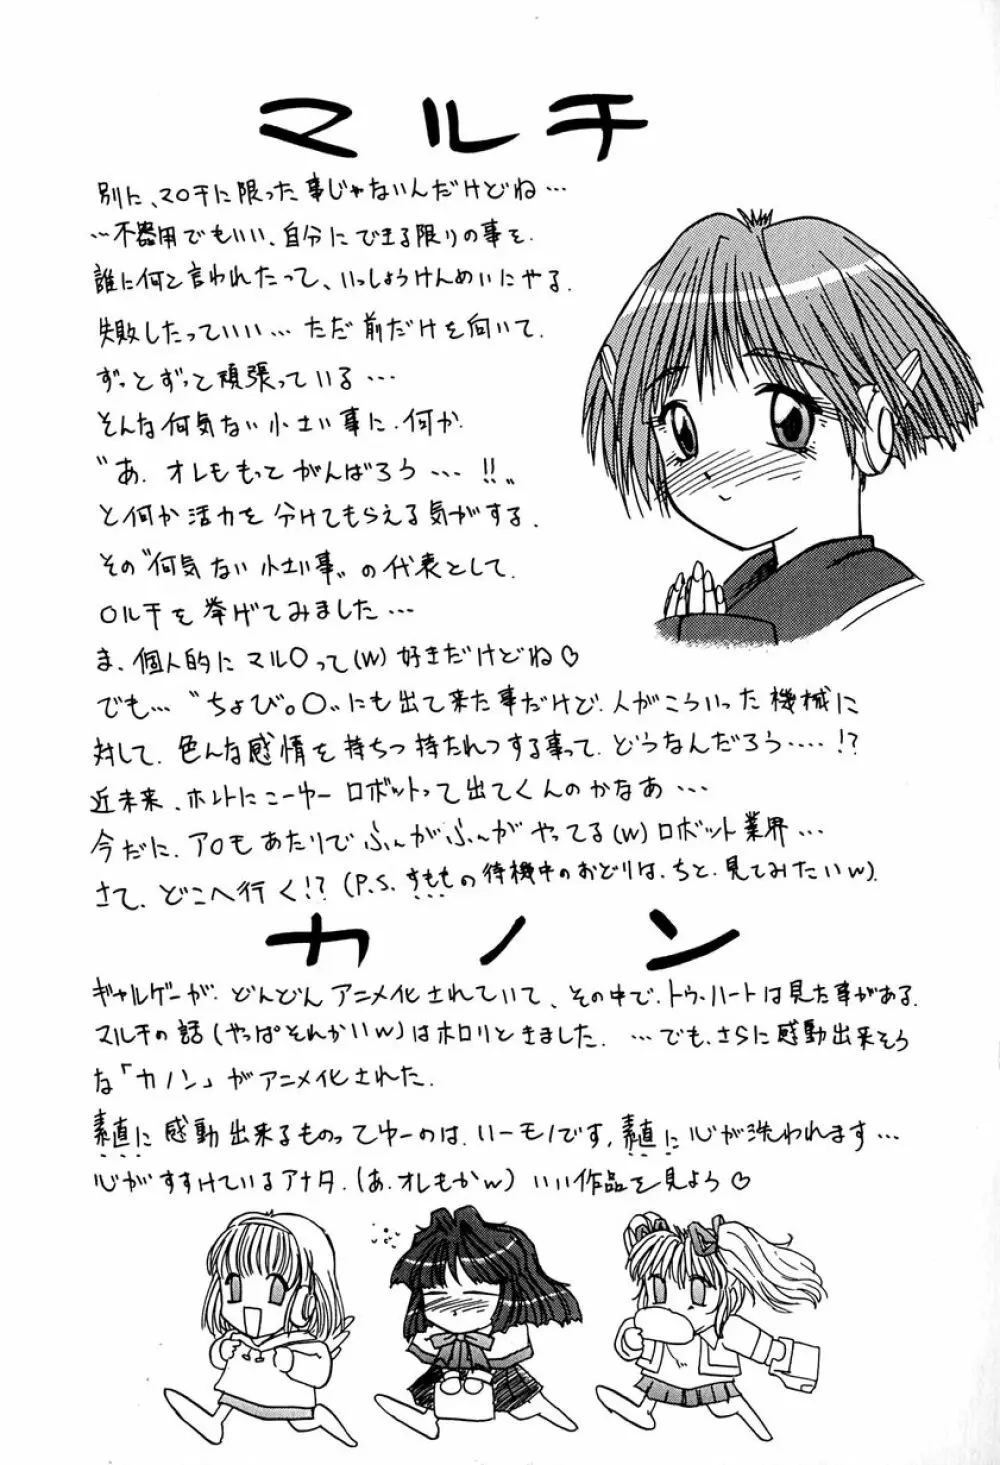 マルチ
別に、マ○チに限った事じゃないんだけどね…
…不器用でもいい、自分にできる限りの事を、
誰に何と言われたって、いっしょうけんめいにやる。
失敗したっていい…ただ前だけを向いて、
ずっとずっと頑張っている…
そんな何気ない小さい事に、何か、
〝あ、オレももってがんばろう…!!〟
と何か活力を分けてもらえる気がする。
その〝何気ない小さい事〟の代表として、
○ルチを挙げてみました…
ま、個人的にマル○って(w)好きだけどね♡
でも…〝ちょび。○〟にも出て来た事だけど、人がこういった機械に
対して、色んな感情を持ちつ持たれつする事って、どうなんだろう…!?
近未来、ホントにこーゆーロボットって出てくんのかなあ…
今だに、ア○もあたりでふんがふんがやってる(w)ロボット業界…
さて、どこへ行く!?(P.S.すももの待機中のおどりは、ちと、見てみたいw)。
カノン
ギャルゲーが、どんどんアニメ化されていて、その中で、トゥ・ハートは見た事がある。
マルチの話(やっぱそれかいw)はホロリときました。…でも、さらに感動出来そう
な「カノン」がアニメ化された。
素直に感動出来るものってゆーのは、いーモノです、素直に心が洗われます…
心がすすけているアナタ、(あ、オレもかw)いい作品を見よう♡